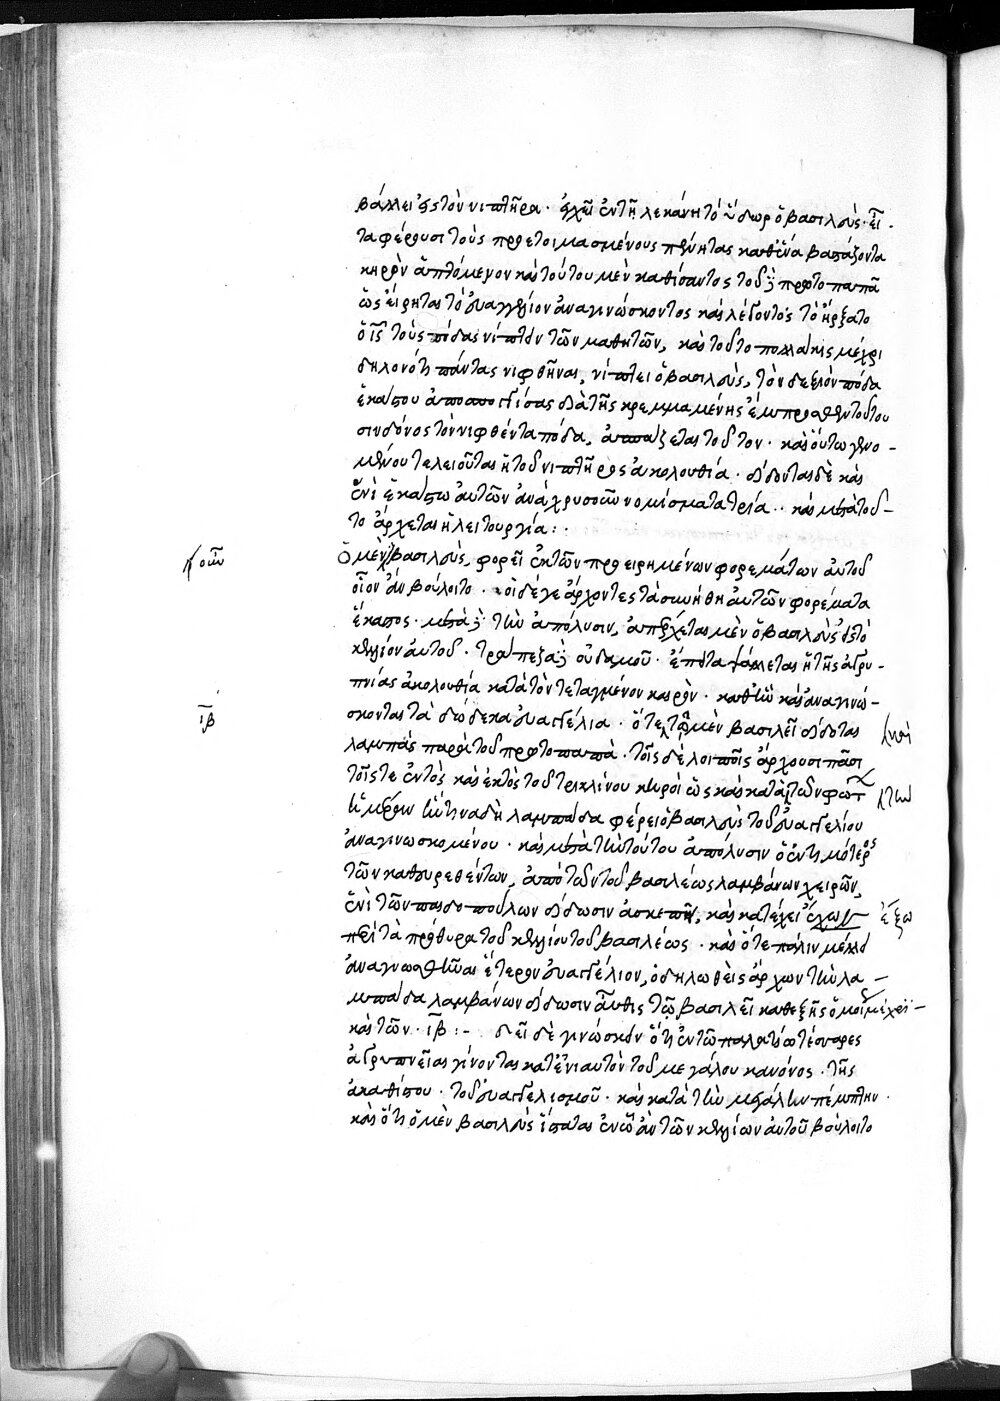 βάλλει εἰς τὸν νιπτῆρα · ἐγχεῖ ἐν τῇ λεκάνῃ τὸ ὕδωρ ὁ βασιλεὺς · εἶ -
τα φέρουσι τοὺς προετοιμασμένους πένητας καθ' ἕνα βαστάζοντα
κηρὸν ἁπτόμενον καὶ τούτου μὲν καθίσαντος τοῦ δὲ πρωτοπαπᾶ
ὡς εἴρηται τὸ εὐαγγέλιον ἀναγινώσκοντος καὶ λέγοντος τὸ ἤρξατο
ὁ ἰς τοὺς πόδας νίπτειν τῶν μαθητῶν, καὶ τοῦτο πολλάκις μέχρι
δηλονότι πάντας νιφθῆναι, νίπτει ὁ βασιλεὺς, τὸν δεξιὸν πόδα
ἑκάστου ἀποσπογγίσας διὰ τῆς κρεμμαμένης ἔμπροσθεν τούτου
σινδόνος τὸν νιφθέντα πόδα, ἀσπάζεται τοῦτον · καὶ οὕτω γενο -
μένου τελειοῦται ἡ τοῦ νιπτῆρος ἀκολουθία · δίδονται δὲ καὶ
ἑνὶ ἑκάστῳ αὐτῶν ἀνὰ χρυσῶν νομίσματα τρία · · καὶ μετὰ τοῦ -
το ἄρχεται ἡ λειτουργία : ·
γοῦν
Ὁ μὲν βασιλεὺς, φορεῖ ἐκ τῶν προειρημένων φορεμάτων αὐτοῦ
οἷον ἂν βούλοιτο · οἱ δέ γε ἄρχοντες τὰ συνήθη αὐτῶν φορέματα
ἕκαστος · μετὰ δὲ τὴν ἀπόλυσιν, ἀπέρχεται μὲν ὁ βασιλεὺς εἰς τὸ
κελλίον αὐτοῦ · τράπεζα δὲ οὐδαμοῦ · ἔπειτα ψάλλεται ἡ τῆς ἀγρυ -
πνίας ἀκολουθία κατὰ τὸν τεταγμένον καιρὸν · καθ' ἣν καὶ ἀναγινώ -
ιβ
σκονται τὰ δώδεκα εὐαγγέλια · ὅτε τῷ μὲν βασιλεῖ δίδοται
λαμπὰς παρὰ τοῦ πρωτοπαπᾶ · τοῖς δὲ λοιποῖς ἄρχουσι πᾶσι
τοῖς τε ἐντὸς καὶ ἐκτὸς τοῦ τρικλίνου κηροὶ ὡς καὶ κατὰ τῶν φώτ
τὴν
ἡμέραν ἥντινα δὴ λαμπάδα φέρει ὁ βασιλεὺς τοῦ εὐαγγελίου
ἀναγινωσκομένου · καὶ μετὰ τὴν τούτου ἀπόλυσιν ὁ ἐντιμότερος
τῶν καθευρεθέντων, ἀπὸ τῶν τοῦ βασιλέως λαμβάνων χειρῶν,
ἑνὶ τῶν παιδοπούλων δίδωσιν ἀσκεπῆ, καὶ κατέχει ἔχων
ἔξω
περὶ τὰ πρόθυρα τοῦ κελλίου τοῦ βασιλέως · καὶ ὅτε πάλιν μέλλει
ἀναγνωσθῆναι ἕτερον εὐαγγέλιον, ὁ δηλωθεὶς ἄρχων τὴν λα -
μπάδα λαμβάνων δίδωσιν αὖθις τῷ βασιλεῖ καθεξῆς ὁμοί μέχρι -
καὶ τῶν · ιβ : - δεῖ δὲ γινώσκειν ὅτι ἐν τῷ παλατίῳ τέσσαρες
ἀγρυπνεῖαι γίνονται κατ' ἐνιαυτὸν τοῦ μεγάλου κανόνος · τῆς
ἀκαθίστου · τοῦ εὐαγγελισμοῦ · καὶ κατὰ τὴν μεγάλην πέμπτην ·
καὶ ὅτι ὁ μὲν βασιλεὺς ἵσταται ἐν ᾧ ἂν τῶν κελλίων αὐτοῦ βούλοιτο